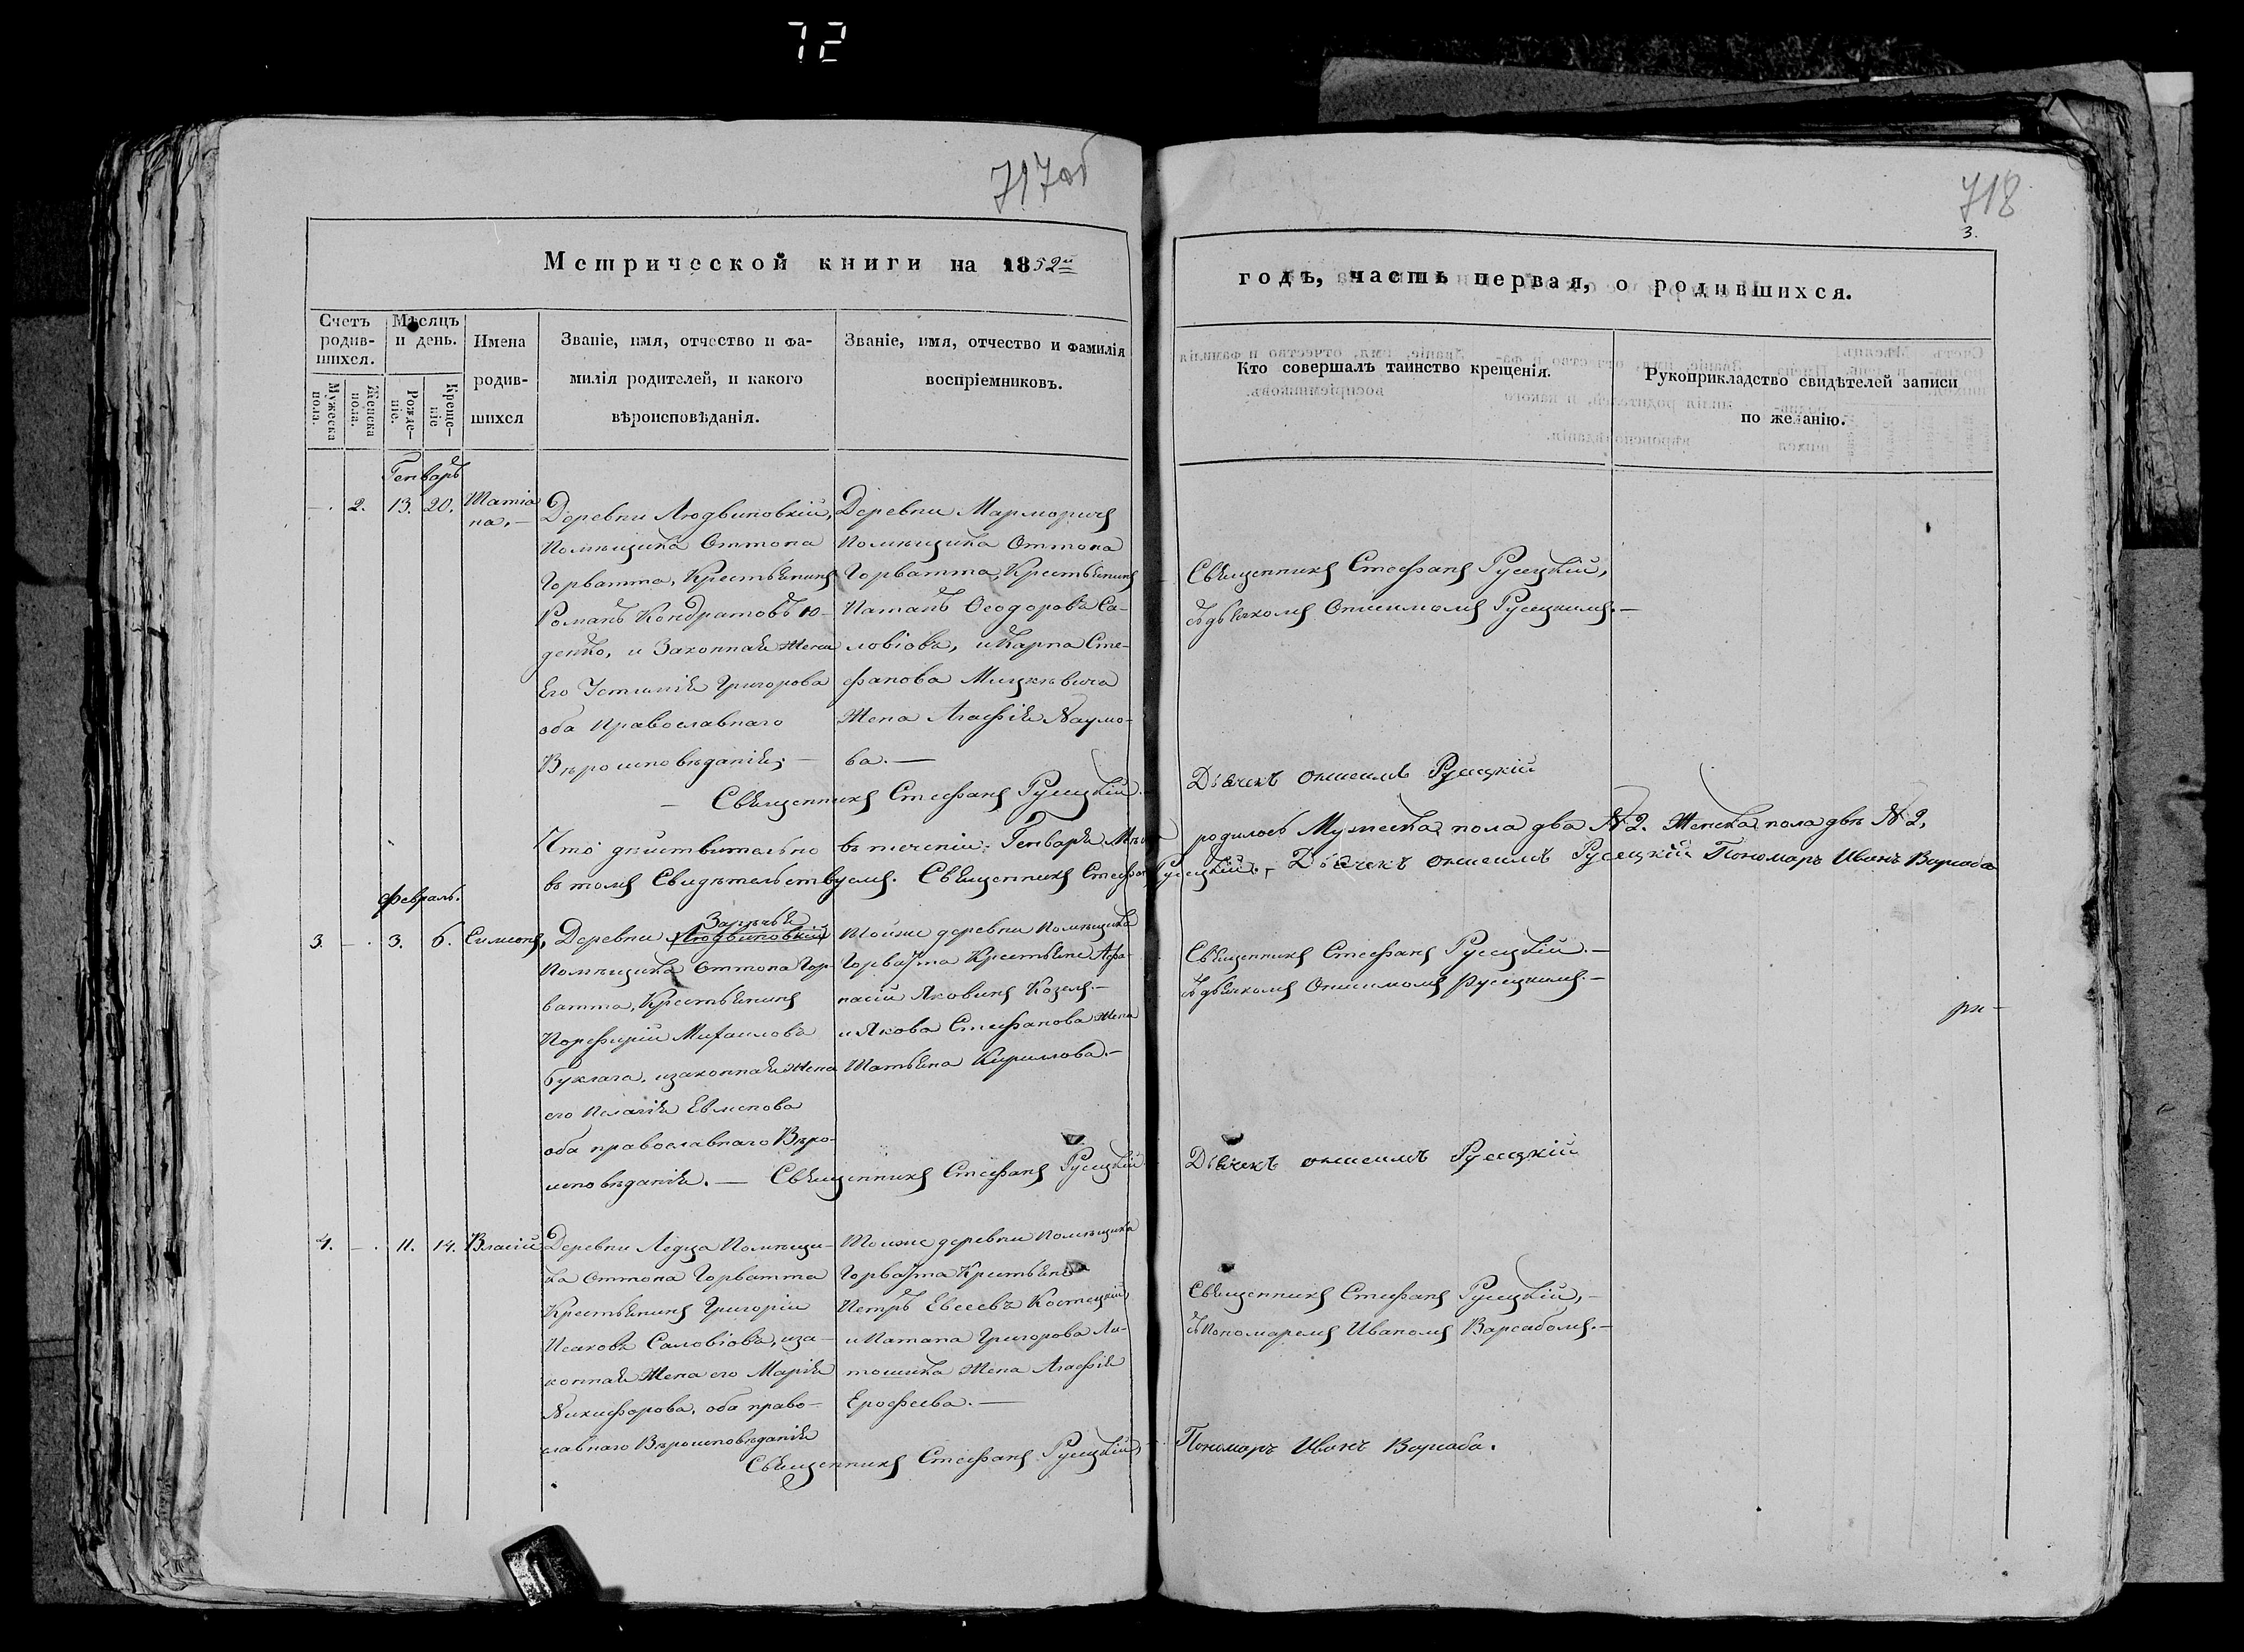 72
717об
718
3.
Метрической книги на 1852й
годъ, часть первая, о родившихся.
Счетъ родив-
шихся.
Мужеска пола.
Женска пола.
Мѣсяцъ
и день.
Рожде-
ніе.
Креще-
ніе
Имена
родив-
шихся
Званіе, имя, отчество и фа-
милія родителей, и какого
вѣроисповѣданія.
Званіе, имя, отчество и фамилія
воспріемниковъ.
Кто совершалъ таинство крещенія.
Рукоприкладство свидѣтелей записи
по желанію.
Генварь
— . 2. 13. 20.
Татіа
на, —
Деревни Людвиновкій,
Помѣщика Оттона
Горватта, Крестьянинъ
Романъ Кондратовъ Ю-
денко, и Законная жена
Его Устинія Григорова
оба Православнаго
Вѣроисповѣданія; —
Деревни Марморичъ
Помѣщика Оттона
Горватта, Крестьянинъ
Патапъ Ѳеодоровъ Са-
ловіовъ, и Карпа Сте-
фанова Мицкѣвича
Жена Агафія Наумо-
ва. —
Священникъ Стефанъ Русецкій,
съ дьячкомъ Онисимомъ Русецкимъ. —
— Священникъ Стефанъ Русецкій. —
Дьячекъ Онисимъ Русецкій
Что дѣйствительно въ теченіи Генваря родилось Мужеска пола два № 2. Женска пола двѣ № 2,
въ томъ Свидѣтельствуемъ. Священникъ Стефанъ Русецкій. — Дьячекъ Онисимъ Русецкій Пономарь Иванъ Варсаба
Февраль.
3. — . 3. 6. Симеонъ,
Зарѣчья
Деревни Людвиновкій
Помѣщика Оттона Гор-
ватта, Крестьянинъ
Порфирій Михаиловъ
Буклага, и законная жена
его Пелагія Евменова
оба православнаго Вѣро-
исповѣданія. —
Тойже деревни Помѣщика
Горватта Крестьяне Афа-
насій Яковинъ Козелъ. —
и Якова Стефанова жена
Татьяна Кирилова. —
Священникъ Стефанъ Русецкій. —
съ дьячкомъ Онисимомъ Русецкимъ. —
Священникъ Стефанъ Русецкій
Дьячекъ Онисимъ Русецкій
4. — . 11. 14. Власій
Деревни Ледца Помѣщи-
ка Оттона Горватта
Крестьянинъ Григорій
Исаковъ Саловіовъ, и за-
конная Жена его Марія
Никифорова, оба право-
славнаго Вѣроисповѣданія
Тойже деревни Помѣщика
Горватта Крестьяне
Петръ Евсеевъ Костецкій,
и Патапа Григорова
Жена Агафія
Ерофеева. —
Священникъ Стефанъ Русецкій, —
съ Пономаремъ Иваномъ Варсабомъ. —
Священникъ Стефанъ Русецкій,
Пономарь Иванъ Варсаба.